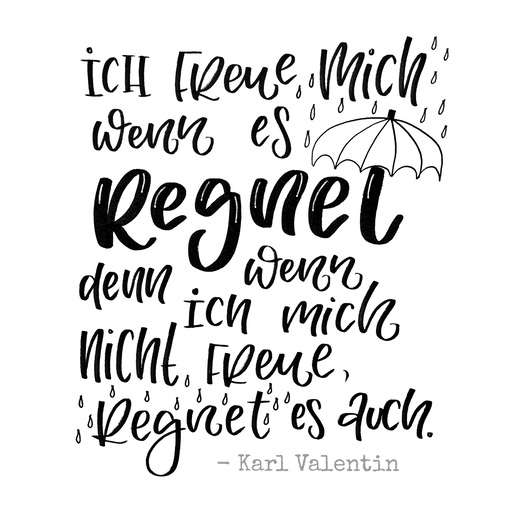 ich freue mich
wenn es
Regnet
denn wenn
ich mich
nicht freue,
Regnet es auch.
– Karl Valentin